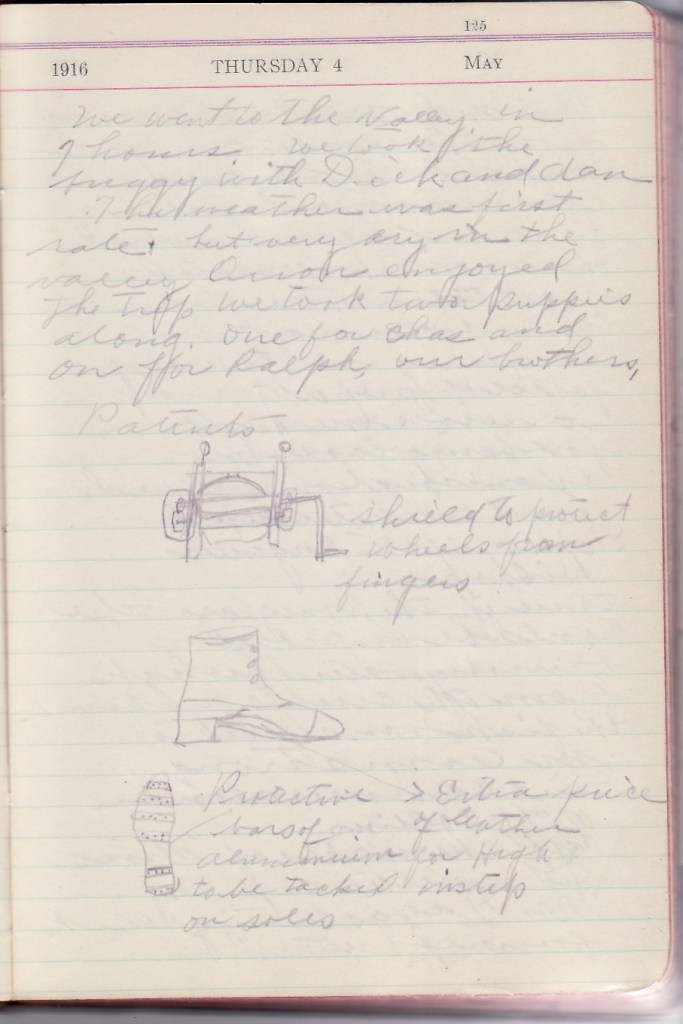 125
1916 THURSDAY 4 MAY
We went to the Valley in
7 hours we took the
buggy with Dick and dan
The weather was first
rate. but very dry in the
valley Orion enjoyed
the trip we took two puppies
along. one for Chas and
on ffor Ralph, our brothers,
Patents
shield to protect
wheels from
fingers
Protective > Extra piece
bars of of leather
aluminium for High
to be tacked instep
on soles